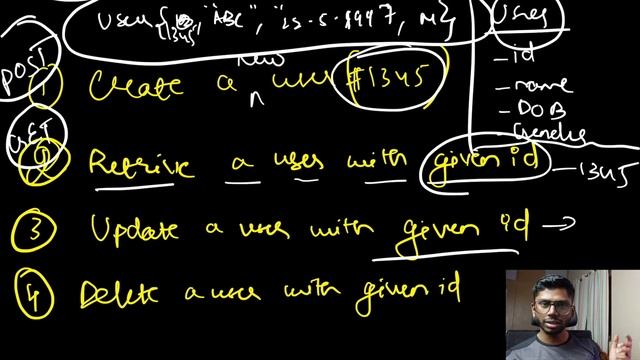 User {1345, "ABC", "15-5-1997, M}
User
- id
- name
- DOB
- Gender
POST
1 Create a new user #1345
GET
2 Retrive a user with given id - 1345
3 Update a user with given id →
4 Delete a user with given id